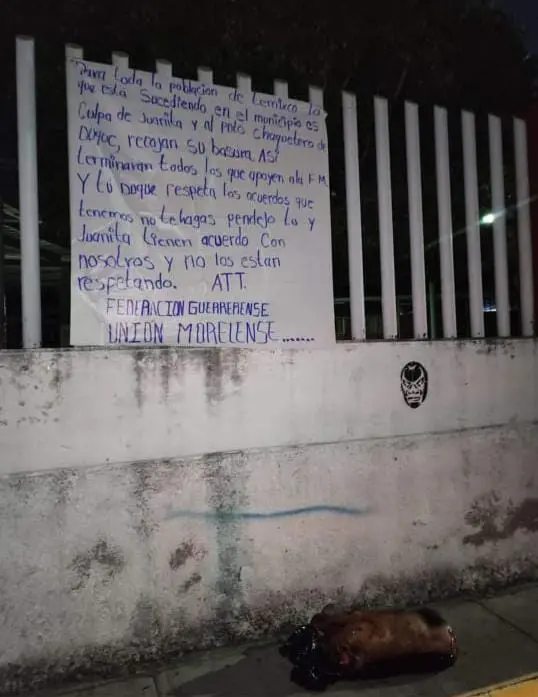 Para toda la poblacion de Temixco lo
que está Sucediendo en el municipio es
Culpa de Juanita y al puto chaquetero de
Duque, recojan su basura ASÍ
terminaran todos los que apoyen ala F.M.
Y tú Duque respeta los acuerdos que
tenemos no tehagas pendejo tu y
Juanita tienen acuerdo Con
nosotros y no los estan
respetando. ATT.
FEDERACION GUERRERENSE
UNIÓN MORELENSE......